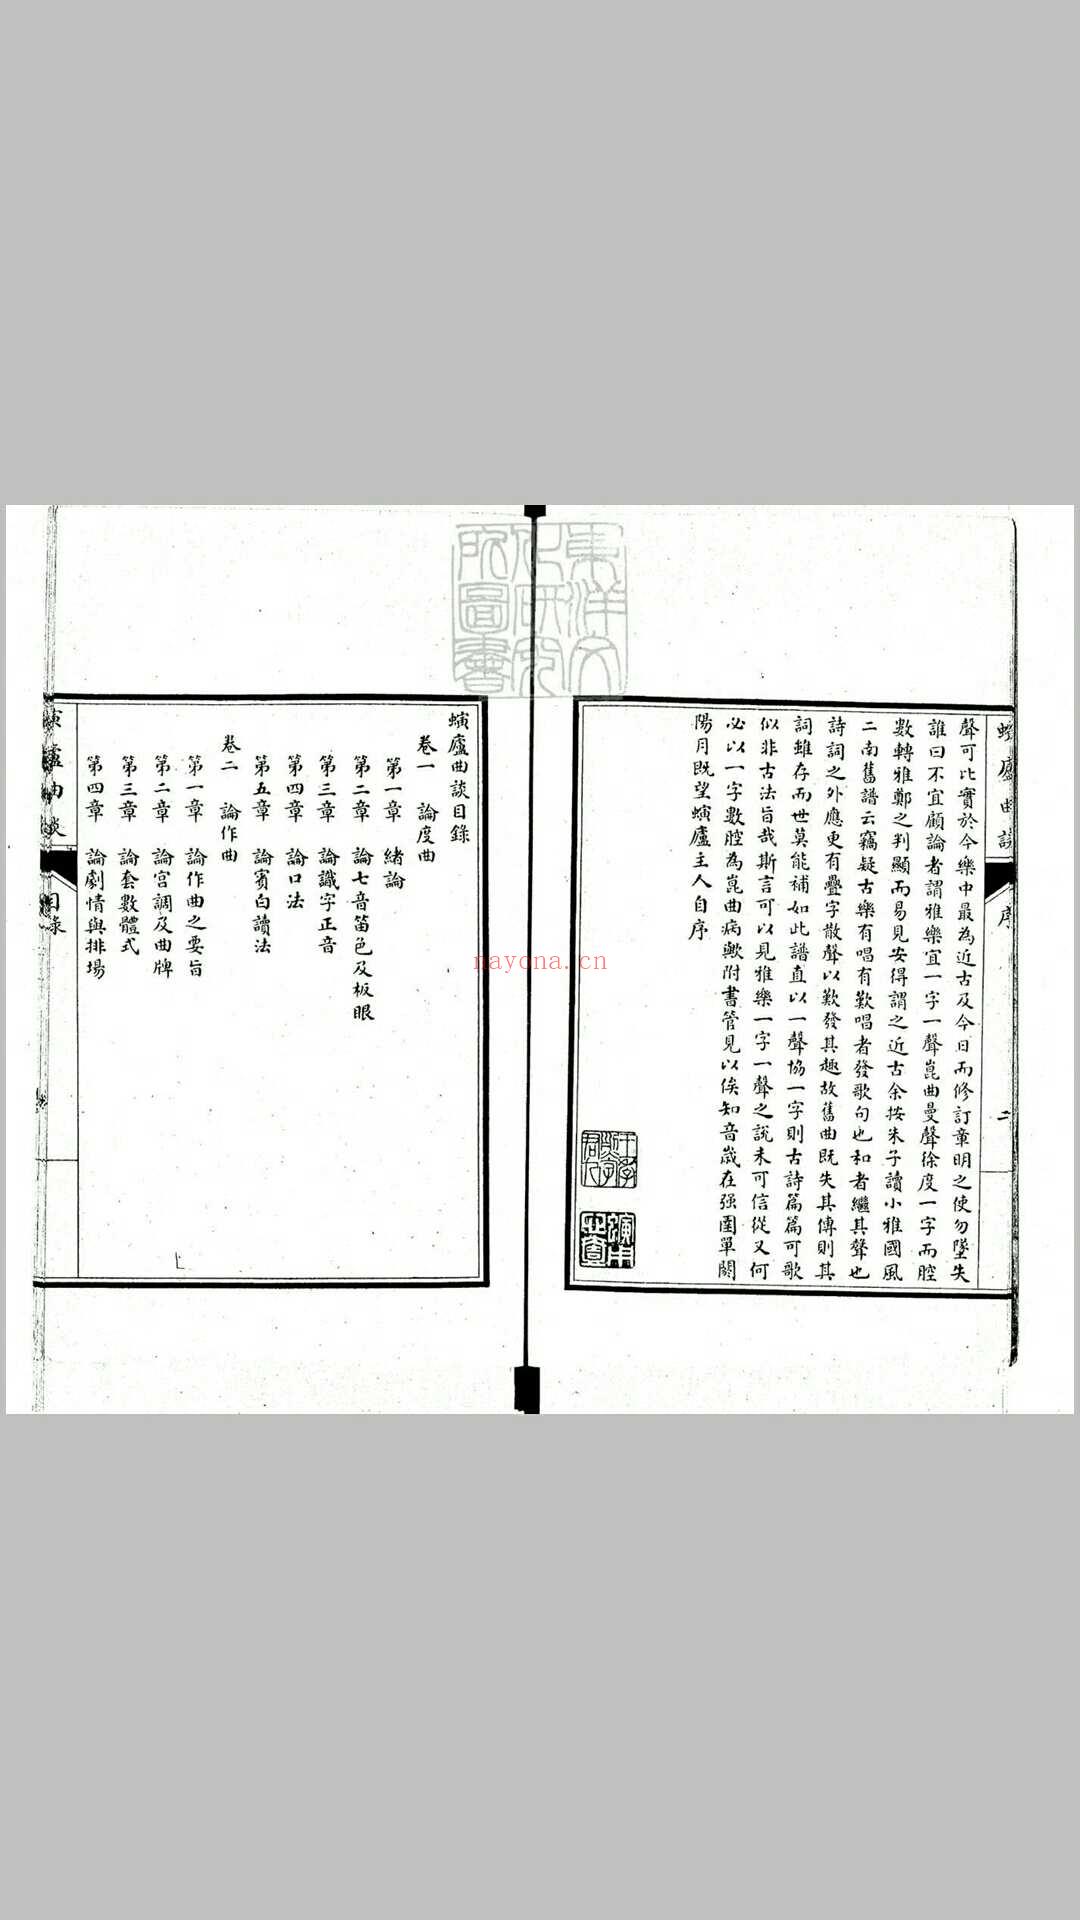 螾廬曲談
序
二
聲可比實於今樂中最為近古及今日而修訂章明之使勿墜失
誰曰不宜顧論者謂雅樂宜一字一聲崑曲曼聲徐度一字而腔
數轉雅鄭之判顯而易見安得謂之近古余按朱子讀小雅國風
二南舊譜云竊疑古樂有唱有歎唱者發歌句也和者繼其聲也
詩詞之外應更有疊字散聲以歎發其趣故舊曲既失其傳則其
詞雖存而世莫能補如此譜直以一聲協一字則古詩篇篇可歌
似非古法旨哉斯言可以見雅樂一字一聲之說未可信從又何
必以一字數腔為崑曲病歟附書管見以俟知音歲在强圉單閼
陽月既望螾廬主人自序
東洋文
化研究
所圖書
螾廬曲談目錄
卷一 論度曲
第一章 緒論
第二章 論七音笛色及板眼
第三章 論識字正音
第四章 論口法
第五章 論賓白讀法
卷二 論作曲
第一章 論作曲之要旨
第二章 論宮調及曲牌
第三章 論套數體式
第四章 論劇情與排場
螾廬曲談
目錄
nayona.cn